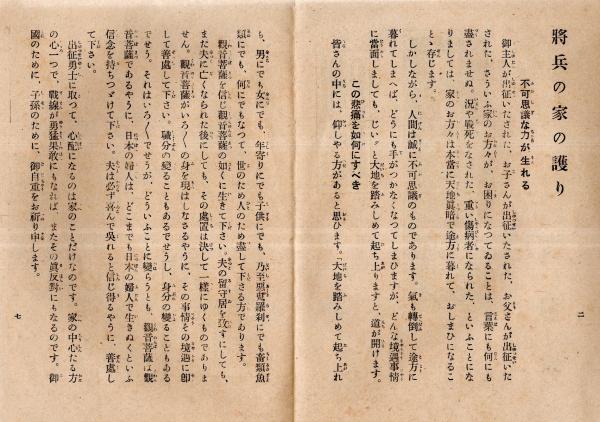 將兵の家の護り
不可思議な力が生れる
御主人が出征いたされた、お子さんが出征いたされた、お父さんが出征いた
された、さういふ家の方々が、お困りになつてゐることは、言葉にも何にも
盡されませぬ。況や戰死をなされた、重い傷病者になられた、といふことにな
りましては、家のお方々は本當に天地眞暗で途方に暮れて、おしまひになるこ
とゝ存じます。
しかしながら、人間は誠に不可思議のものであります。氣も轉倒して途方に
暮れてしまへば、どうにも手がつかなくなつてしまひますが、どんな境遇事情
に當面しましても、じいつと大地を踏みしめて起ち上りますと、道が開けます。
この悲痛を如何にすべき
皆さんの中には、仰しやる方があると思ひます。「大地を踏みしめて起ち上れ
二
も、男にでも女にでも、年寄りにでも子供にでも、乃至惡鬼羅刹にでも畜類魚
類にでも、何にでもなつて、世のため人のため盡して下さる方であります。
觀音菩薩を信じ觀音菩薩の如くに生きて下さい。夫の留守居を致すにしても、
また夫に亡くなられた後にしても、その處置は決して一樣にゆくものでありま
せん。觀音菩薩がいろ〳〵の身を現はしなさるやうに、その事情その境遇に卽
して善處して下さい。職分の變ることもあるでせうし、身分の變ることもある
でせう。それはいろ〳〵でせうが、どういふことに變らうとも、觀音菩薩は觀
音菩薩であるやうに、日本の婦人は、どこまでも日本の婦人で生きぬくといふ
信念を持ちつゞけて下さい。夫は必ず喜んで吳れると信じ得るやうに、善處し
て下さい。
出征勇士に取つて、心配になるのは家のことだけなのです。家の中心たる方
の心一つで、戰線が勇猛果敢にもなれば、またその眞反對にもなるのです。御
國のために、子孫のために、御自重をお祈り申します。
七